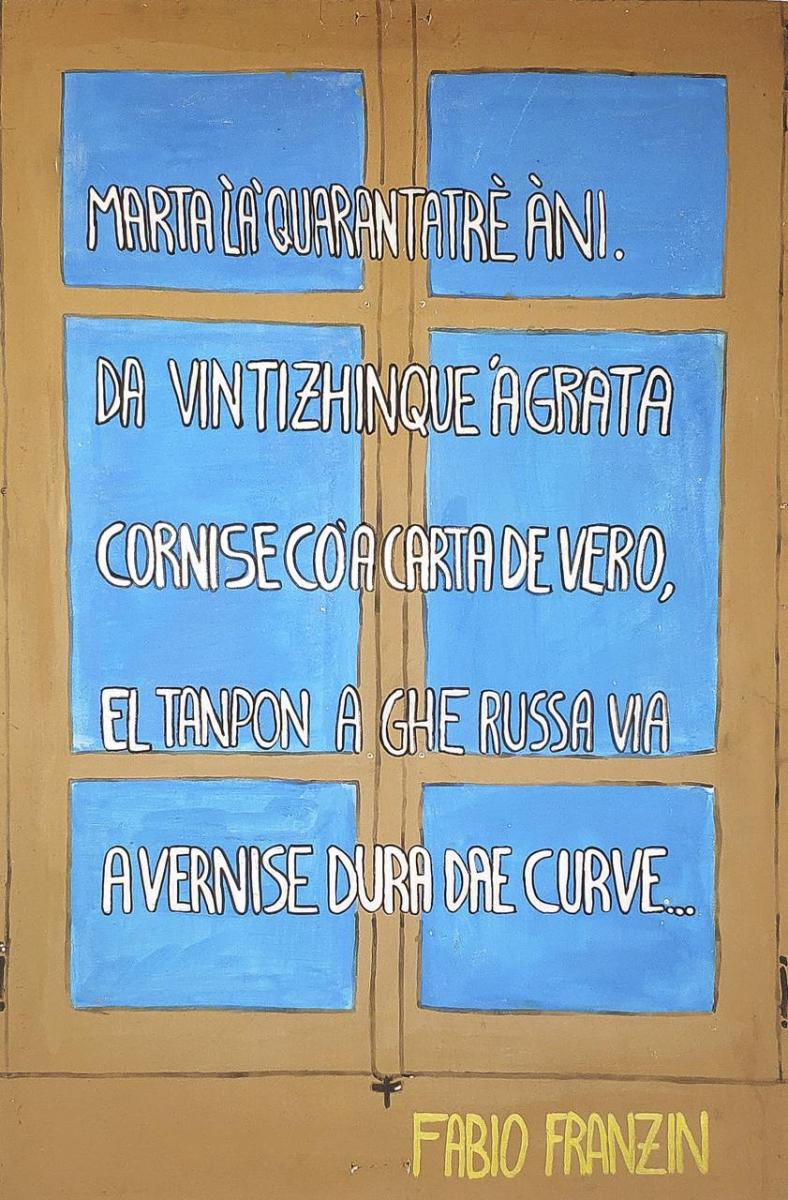 MARTA L'À QUARANTATRÈ ÀNI.
DA VINTIZHINQUE 'A GRATA
CORNISE CO'A CARTA DE VERO,
EL TANPON A GHE RUSSA VIA
A VERNISE DURA DAE CURVE...
FABIO FRANZIN